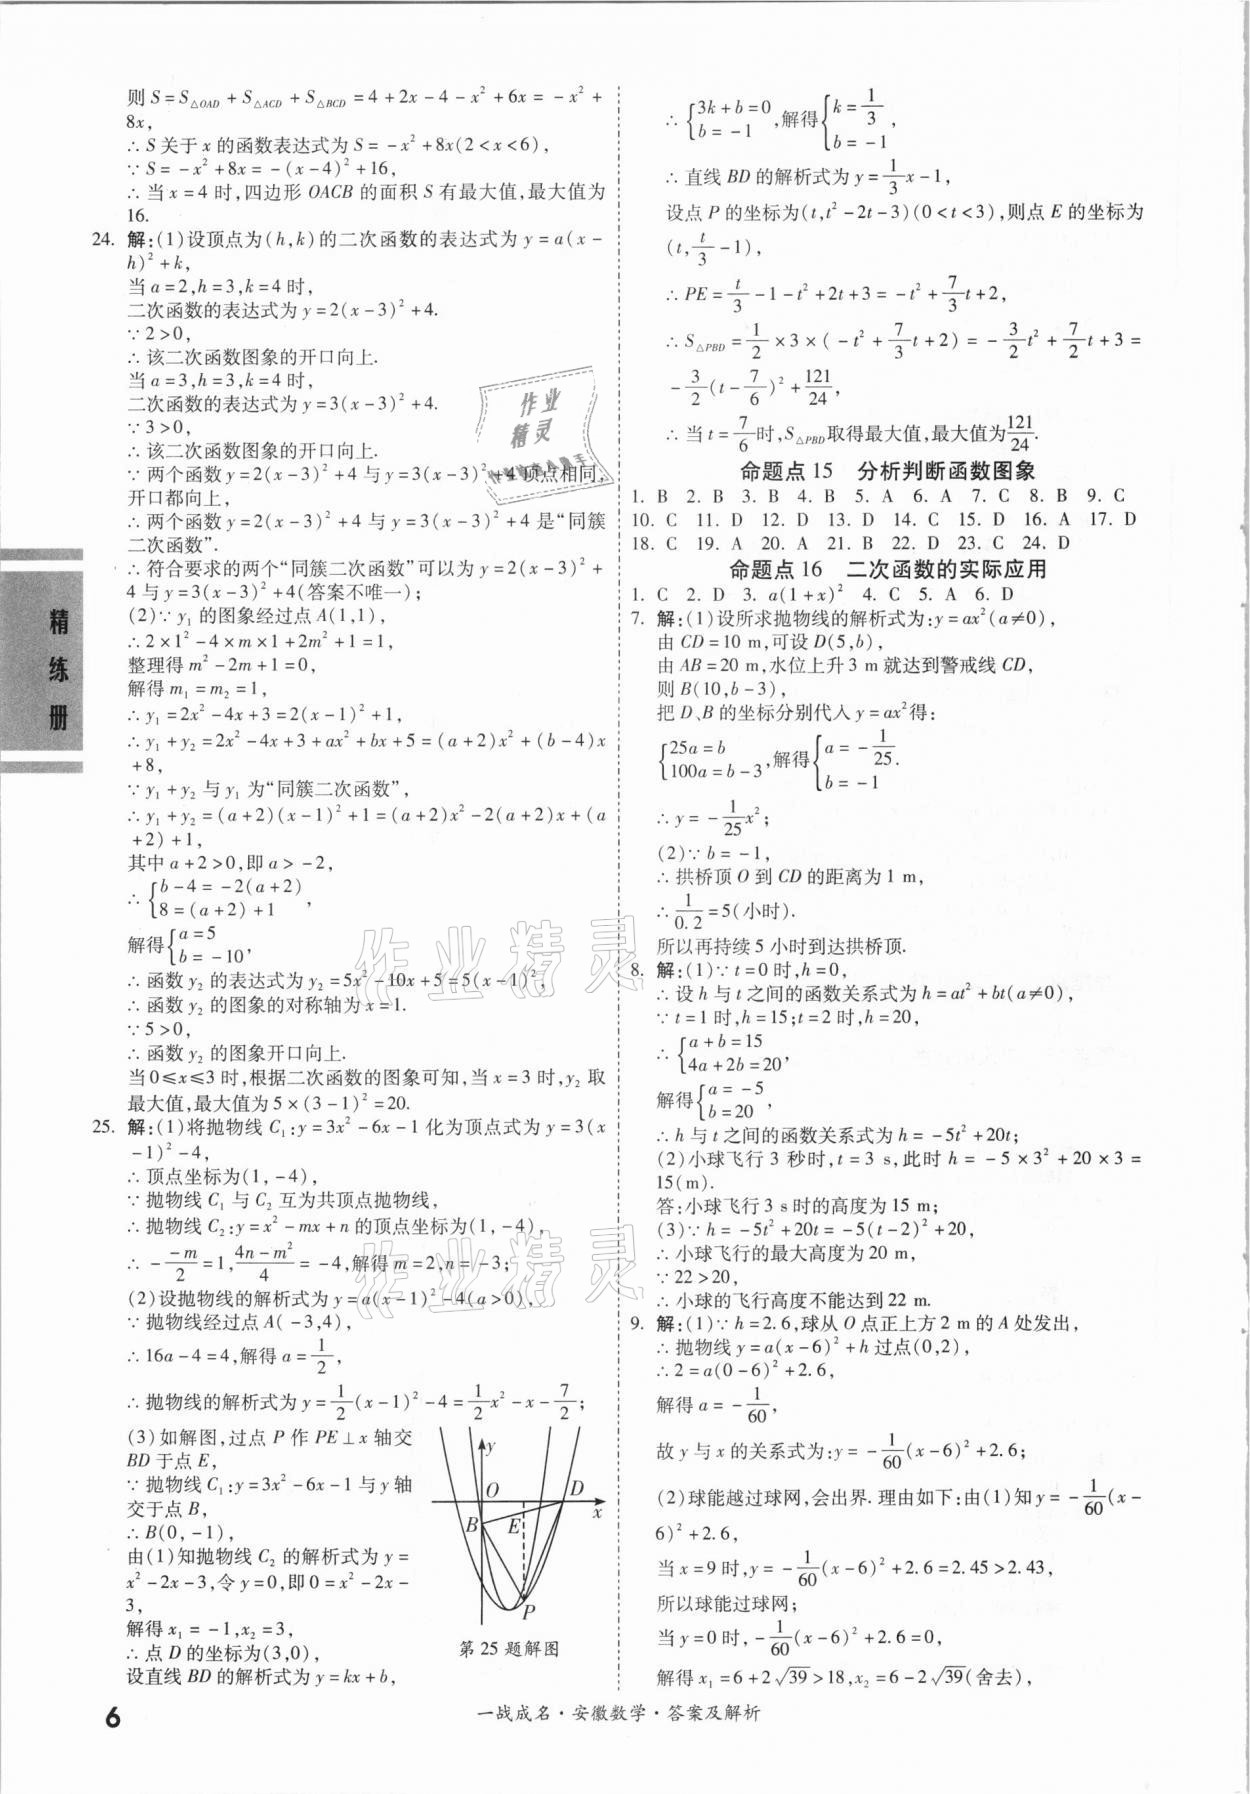 则 S=S△OAD+S△ACD+S△BCD=4+2x-4-x²+6x=-x²+
8x,
∴S 关于 x 的函数表达式为 S=-x²+8x(2<x<6),
∵S=-x²+8x=-(x-4)²+16,
∴当 x=4 时,四边形 OACB 的面积 S 有最大值,最大值为
16.
24. 解:(1)设顶点为(h,k)的二次函数的表达式为 y=a(x-
h)²+k,
当 a=2,h=3,k=4 时,
二次函数的表达式为 y=2(x-3)²+4.
∵2>0,
∴该二次函数图象的开口向上.
当 a=3,h=3,k=4 时,
二次函数的表达式为 y=3(x-3)²+4.
∵3>0,
∴该二次函数图象的开口向上.
∵两个函数 y=2(x-3)²+4 与 y=3(x-3)²+4 顶点相同,
开口都向上,
∴两个函数 y=2(x-3)²+4 与 y=3(x-3)²+4 是“同簇
二次函数”.
∴符合要求的两个“同簇二次函数”可以为 y=2(x-3)²+
4 与 y=3(x-3)²+4(答案不唯一);
(2)∵y₁ 的图象经过点 A(1,1),
∴2×1²-4×m×1+2m²+1=1,
整理得 m²-2m+1=0,
解得 m₁=m₂=1,
∴y₁=2x²-4x+3=2(x-1)²+1,
∴y₁+y₂=2x²-4x+3+ax²+bx+5=(a+2)x²+(b-4)x
+8,
∵y₁+y₂ 与 y₁ 为“同簇二次函数”,
∴y₁+y₂=(a+2)(x-1)²+1=(a+2)x²-2(a+2)x+(a
+2)+1,
其中 a+2>0,即 a>-2,
∴{b-4=-2(a+2)
8=(a+2)+1 ,
解得{a=5
b=-10 ,
∴函数 y₂ 的表达式为 y₂=5x²-10x+5=5(x-1)²,
∴函数 y₂ 的图象的对称轴为 x=1.
∵5>0,
∴函数 y₂ 的图象开口向上.
当 0≤x≤3 时,根据二次函数的图象可知,当 x=3 时,y₂ 取
最大值,最大值为 5×(3-1)²=20.
25. 解:(1)将抛物线 C₁:y=3x²-6x-1 化为顶点式为 y=3(x
-1)²-4,
∴顶点坐标为(1,-4),
∵抛物线 C₁ 与 C₂ 互为共顶点抛物线,
∴抛物线 C₂:y=x²-mx+n 的顶点坐标为(1,-4),
∴-(-m)/2=1,(4n-m²)/4=-4,解得 m=2,n=-3;
(2)设抛物线的解析式为 y=a(x-1)²-4(a>0),
∵抛物线经过点 A(-3,4),
∴16a-4=4,解得 a=1/2,
∴抛物线的解析式为 y=1/2(x-1)²-4=1/2x²-x-7/2;
(3)如解图,过点 P 作 PE⊥x 轴交
BD 于点 E,
∵抛物线 C₁:y=3x²-6x-1 与 y 轴
交于点 B,
∴B(0,-1),
由(1)知抛物线 C₂ 的解析式为 y=
x²-2x-3,令 y=0,即 0=x²-2x-
3,
解得 x₁=-1,x₂=3,
∴点 D 的坐标为(3,0),
设直线 BD 的解析式为 y=kx+b,
y
O
D
x
B
E
P
第 25 题解图
∴{3k+b=0
b=-1 ,解得{k=1/3
b=-1 ,
∴直线 BD 的解析式为 y=1/3x-1,
设点 P 的坐标为(t,t²-2t-3)(0<t<3),则点 E 的坐标为
(t,t/3-1),
∴PE=t/3-1-t²+2t+3=-t²+7/3t+2,
∴S△PBD=1/2×3×(-t²+7/3t+2)=-3/2t²+7/2t+3=
-3/2(t-7/6)²+121/24,
∴当 t=7/6时,S△PBD取得最大值,最大值为121/24.
命题点 15 分析判断函数图象
1. B 2. B 3. B 4. B 5. A 6. A 7. C 8. B 9. C
10. C 11. D 12. D 13. D 14. C 15. D 16. A 17. D
18. C 19. A 20. A 21. B 22. D 23. C 24. D
命题点 16 二次函数的实际应用
1. C 2. D 3. a(1+x)² 4. C 5. A 6. D
7. 解:(1)设所求抛物线的解析式为:y=ax²(a≠0),
由 CD=10 m,可设 D(5,b),
由 AB=20 m,水位上升 3 m 就达到警戒线 CD,
则 B(10,b-3),
把 D、B 的坐标分别代入 y=ax²得:
{25a=b
100a=b-3 ,解得{a=-1/25
b=-1 .
∴y=-1/25x²;
(2)∵b=-1,
∴拱桥顶 O 到 CD 的距离为 1 m,
∴1/0.2=5(小时).
所以再持续 5 小时到达拱桥顶.
8. 解:(1)∵t=0 时,h=0,
∴设 h 与 t 之间的函数关系式为 h=at²+bt(a≠0),
∵t=1 时,h=15;t=2 时,h=20,
∴{a+b=15
4a+2b=20 ,
解得{a=-5
b=20 ,
∴h 与 t 之间的函数关系式为 h=-5t²+20t;
(2)小球飞行 3 秒时,t=3 s,此时 h=-5×3²+20×3=
15(m).
答:小球飞行 3 s 时的高度为 15 m;
(3)∵h=-5t²+20t=-5(t-2)²+20,
∴小球飞行的最大高度为 20 m,
∵22>20,
∴小球的飞行高度不能达到 22 m.
9. 解:(1)∵h=2.6,球从 O 点正上方 2 m 的 A 处发出,
∴抛物线 y=a(x-6)²+h 过点(0,2),
∴2=a(0-6)²+2.6,
解得 a=-1/60,
故 y 与 x 的关系式为:y=-1/60(x-6)²+2.6;
(2)球能越过球网,会出界. 理由如下:由(1)知 y=-1/60(x-
6)²+2.6,
当 x=9 时,y=-1/60(x-6)²+2.6=2.45>2.43,
所以球能过球网;
当 y=0 时,-1/60(x-6)²+2.6=0,
解得 x₁=6+2√39>18,x₂=6-2√39(舍去),
精练册
6
一战成名·安徽数学·答案及解析
作业精灵
作业精灵
作业
精灵